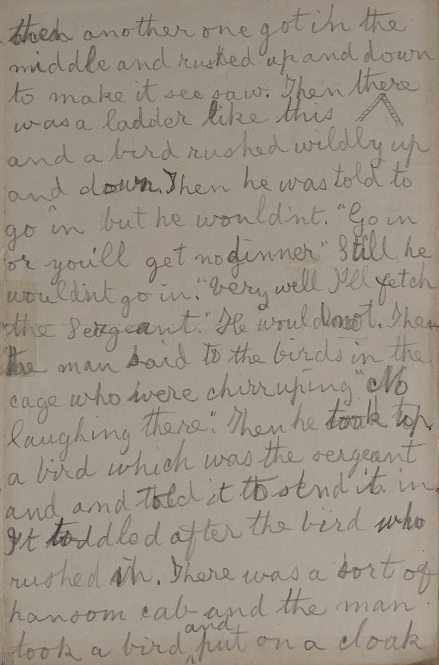 then another one got in the
middle and rushed up and down
to make it see saw. Then there
was a ladder like this
and a bird rushed wildly up
and down. Then he was told to
go in but he wouldn't. "Go in
or you'll get no dinner" Still he
wouldn't go in. "Very well I'll fetch
the Sergeant." He would not. Then
the man said to the birds in the
cage who were chirruping "No
laughing there". Then he took up
a bird which was the sergeant
and and told it to send it in.
It toddled after the bird who
rushed in. There was a sort of
hansom cab and the man
took a bird and put on a cloak